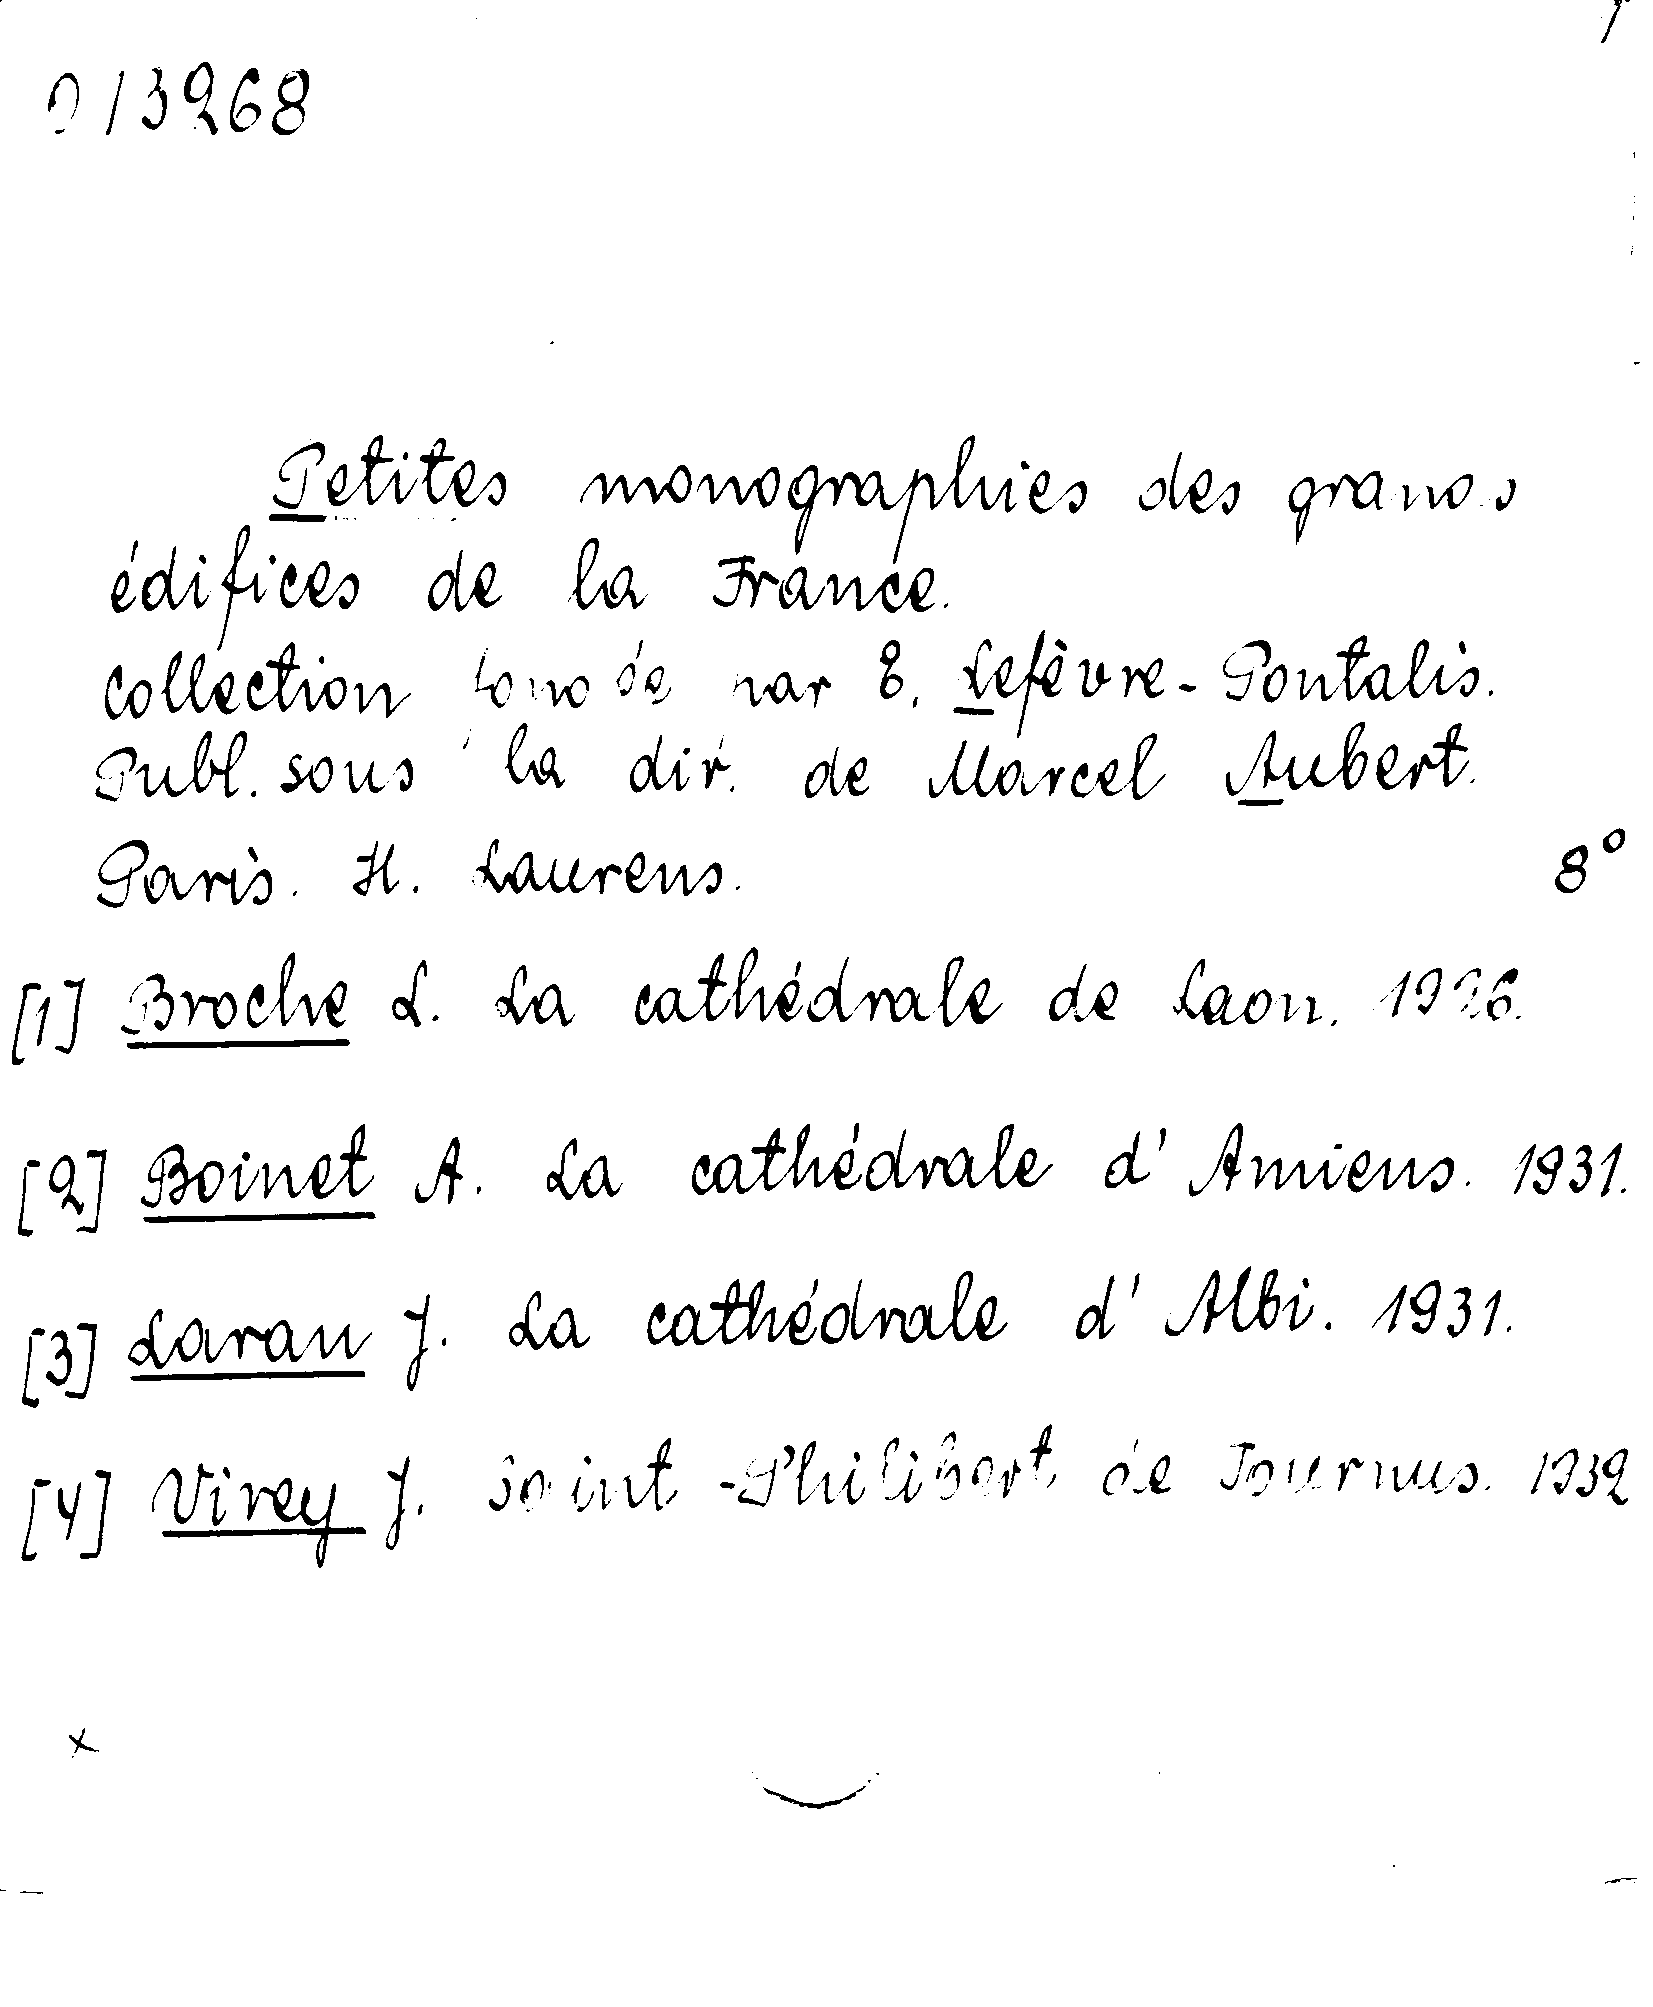 013268
Petites monographies des grands
édifices de la France.
Collection fondée par E. Lefèvre-Pontalis.
Publ. sous la dir. de Marcel Aubert.
Paris. H. Laurens. 8°
[1] Broche L. La cathédrale de Laon. 1926.
[2] Boinet A. La cathédrale d'Amiens. 1931.
[3] Laran J. La cathédrale d'Albi. 1931.
[4] Virey J. Saint-Philibert de Tournus. 1932
x